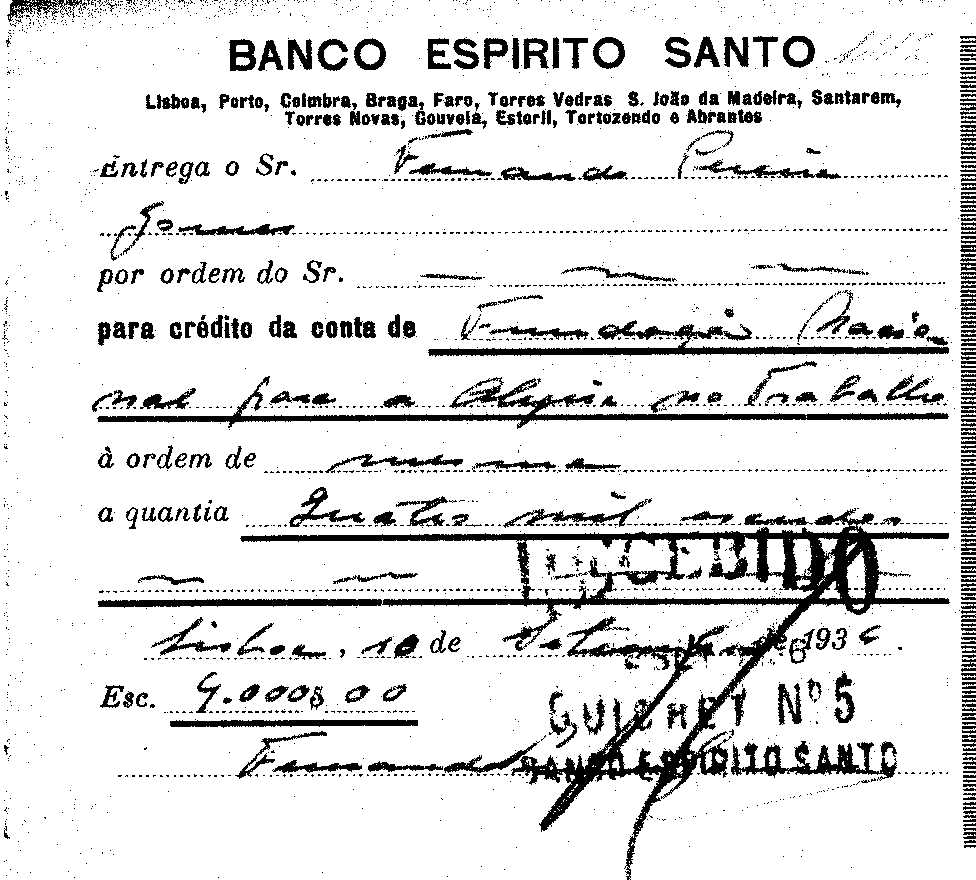 BANCO ESPIRITO SANTO
Lisboa, Porto, Coimbra, Braga, Faro, Torres Vedras S. João da Madeira, Santarem,
Torres Novas, Gouveia, Estoril, Tortozendo e Abrantes
Entrega o Sr. Fernando Pereira
Gomes
por ordem do Sr.
para crédito da conta de Fundação Nacio
nal para a Alegria no Trabalho
à ordem de mesma
a quantia Quatro mil escudos
RECEBIDO
Lisboa, 10 de Setembro de 1936.
Esc. 4.000$00
GUICHET Nº 5
Fernando
BANCO ESPIRITO SANTO